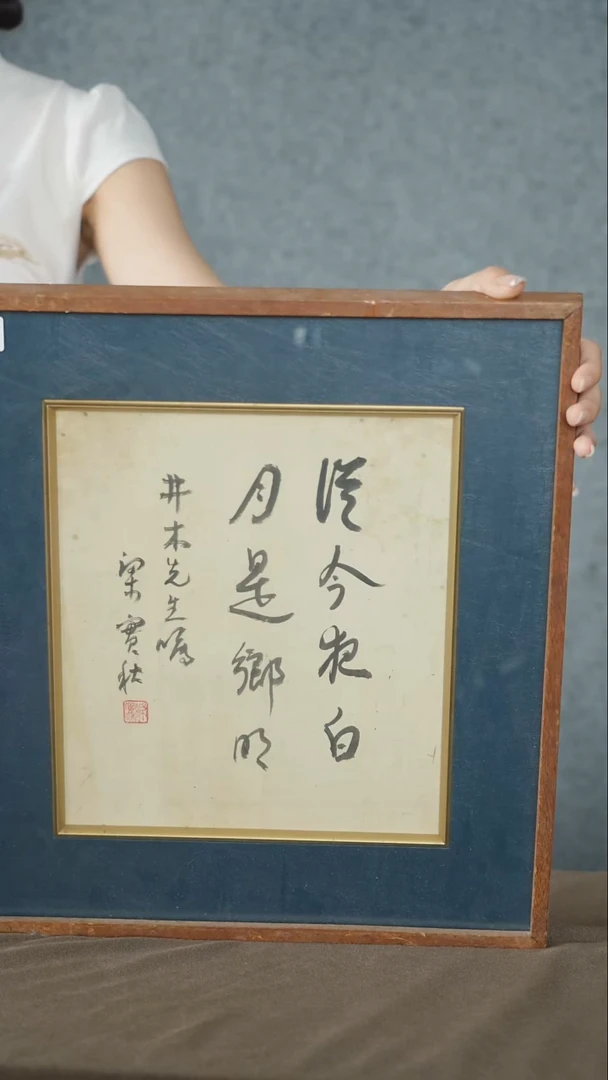 從今夜白
月是鄉明
井木先生嘱
梁實秋